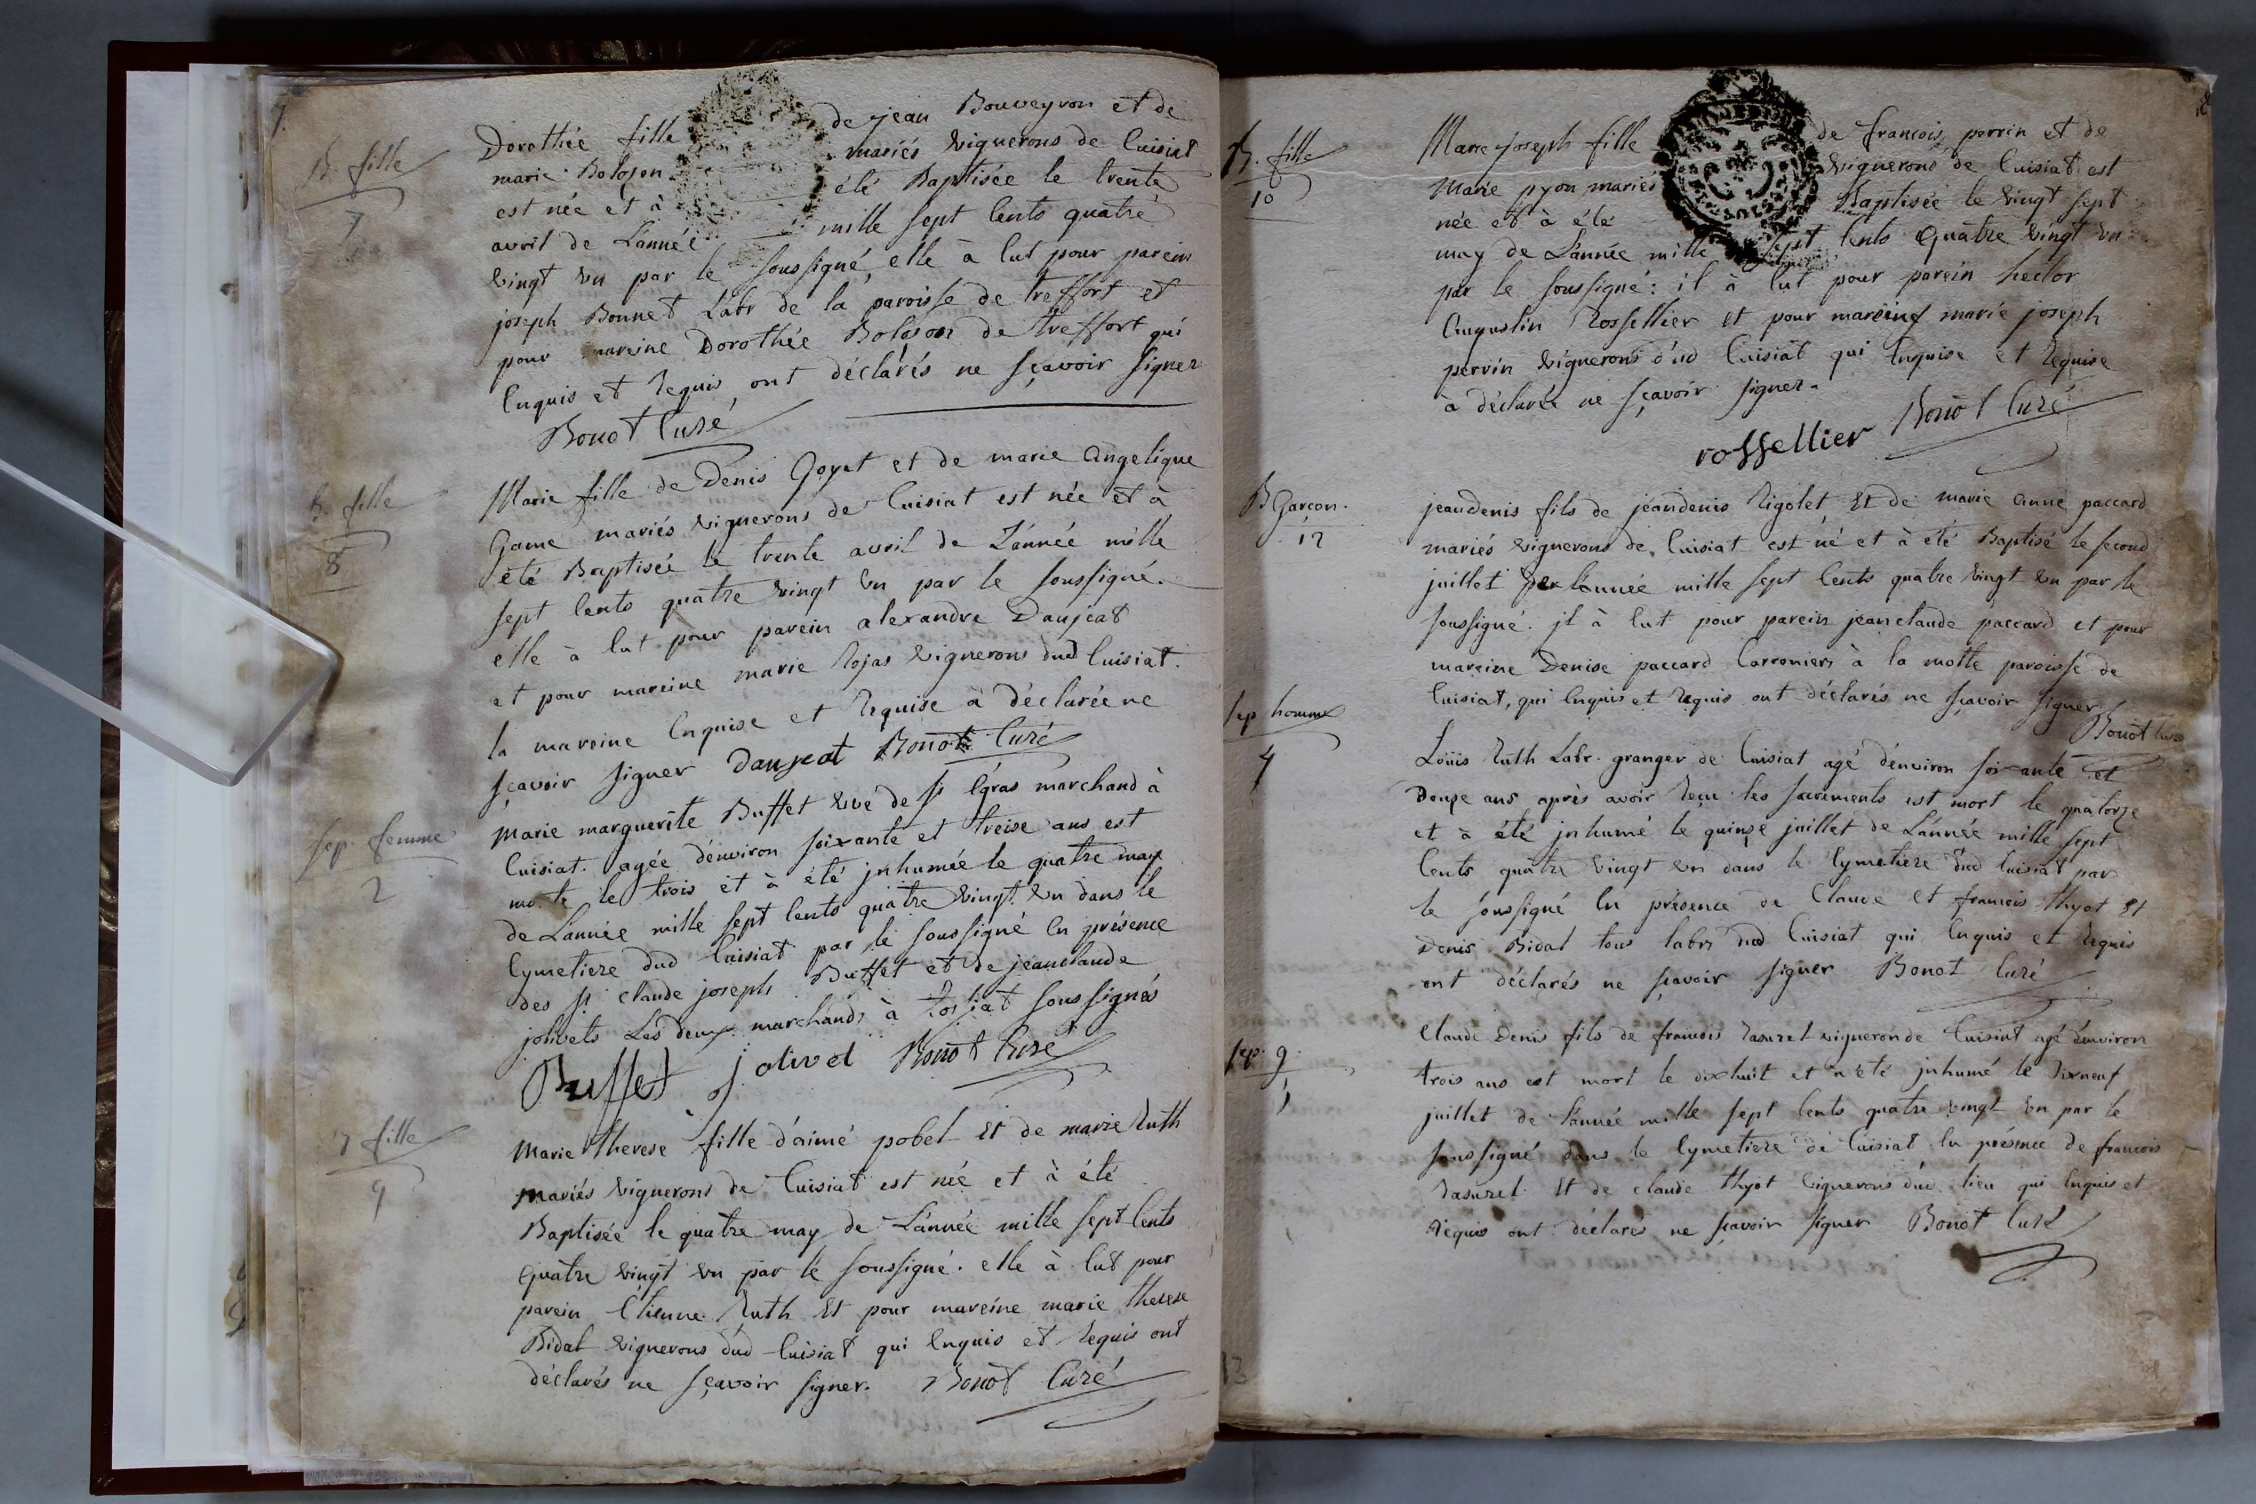 B. fille
7
Dorothée fille de jean Bouveyron et de
marie Bolozon mariés vignerons de Cuisiat
est née et à été Baptisée le trente
avril de L'année mille sept Cents quatre
vingt un par le soussigné, elle à Eut pour parein
joseph Bonnet Labr de la paroisse de treffort et
pour mareine Dorothée Bolozon de treffort qui
Enquis et Requis ont déclarés ne sçavoir signer
Bonot Curé
B. fille
8
Marie fille de Denis Goyet et de marie Angelique
Game mariés vignerons de Cuisiat est née et à
été Baptisée le trente avril de L'année mille
sept Cents quatre vingt un par le soussigné.
elle à Eut pour parein alexandre Daujeat
et pour mareine marie Rojas vignerons dud Cuisiat.
la mareine Enquise et Requise à déclarée ne
sçavoir signer Daujeat Bonot Curé
sep. femme
2
Marie marguerite Buffet vve de sr Egras marchand à
Cuisiat. agée d'environ soixante et treise ans est
morte le trois et à été jnhumée le quatre may
de L'année mille sept Cents quatre vingt un dans le
Cymetiere dud Cuisiat par le soussigné En présence
des sr Claude joseph Buffet et de jeanclaude
jolivets Les deux marchands à soussignés
Buffet jolivet Bonot Curé
B fille
9
Marie therese fille d'aimé pobel Et de marie Ruth
mariés vignerons de Cuisiat est née et à été
Baptisée le quatre may de L'année mille sept Cents
quatre vingt un par le soussigné. elle à Eut pour
parein Etienne Ruth Et pour mareine marie therese
Bidal vignerons dud Cuisiat qui Enquis et Requis ont
déclarés ne sçavoir signer. Bonot Curé
B. fille
10
Marie joseph fille de francois perrin et de
Marie pyon mariés vignerons de Cuisiat est
née et à été Baptisée le vingt sept
may de L'année mille sept Cents quatre vingt un
par le soussigné: il à Eut pour parein hector
Augustin Rossellier et pour mareine marie joseph
perrin vignerons dud Cuisiat qui Enquise et Requise
à déclarée ne sçavoir signer.
rossellier Bonot Curé
B Garcon.
12
jeandenis fils de jeandenis Rigolet Et de marie Anne paccard
mariés vignerons de Cuisiat est né et à été Baptisé le second
juillet de L'année mille sept Cents quatre vingt un par le
soussigné. jl à Eut pour parein jeanclaude paccard et pour
mareine Denise paccard Carroniers à la motte paroisse de
Cuisiat, qui Enquis et Requis ont déclarés ne sçavoir signer
Bonot Curé
sep homme
4
Loüis Ruth Labr. granger de Cuisiat agé d'environ soixante et
Douze ans après avoir Reçu les sacrements est mort le quatorze
et à été jnhumé le quinze juillet de L'année mille sept
Cents quatre vingt un dans le Cymetiere dud Cuisiat par
le soussigné En présence de Claude Et francois thyot Et
Denis Bidal tous labrs dud Cuisiat qui Enquis et Requis
ont déclarés ne sçavoir signer Bonot Curé
sep. g.
Claude Denis fils de francois vigneron de Cuisiat agé d'environ
trois ans est mort le dixhuit et a été jnhumé le Dixneuf
juillet de L'année mille sept Cents quatre vingt un par le
soussigné dans le Cymetiere de Cuisiat En présence de francois
Et de claude thyot vignerons dud. lieu qui Enquis et
Requis ont déclarés ne sçavoir signer Bonot Curé